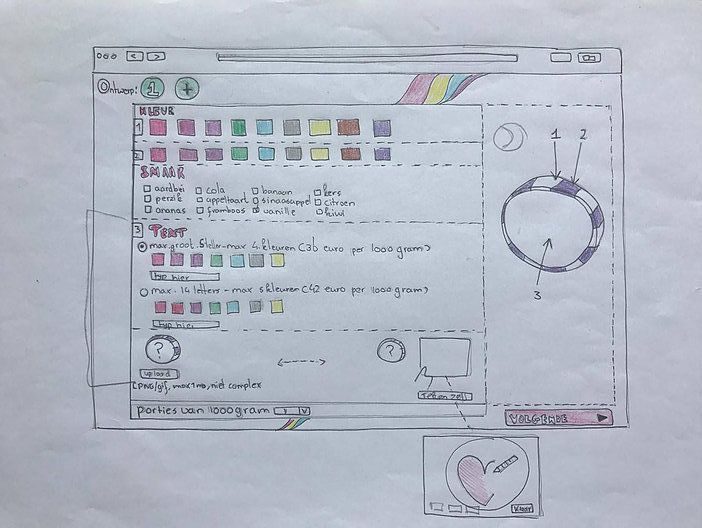 Ontwerp: 1 +
KLEUR
1
2
SMAAK
aardbei cola banaan kers
perzik appeltaart sinaasappel citroen
ananas framboos vanille kiwi
3 TEXT
max. 4 kleuren (36 euro per 1000 gram)
typ hier
max. 14 letters - max 5 kleuren (42 euro per 1000 gram)
typ hier
? ?
upload
(PNG/gif, max 1mb, niet complex
Teken zelf
porties van 1000 gram 1 v
1 2
3
VOLGENDE
klaar